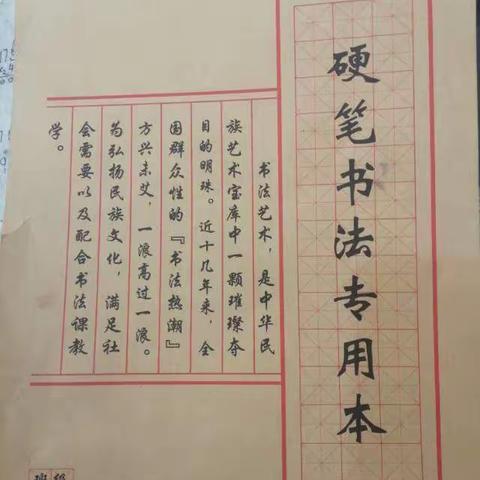 硬笔书法专用本
书法艺术，是中华民
族艺术宝库中一颗璀璨夺
目的明珠。近十几年来，全
国群众性的『书法热潮』
方兴未艾，一浪高过一浪。
为弘扬民族文化，满足社
会需要以及配合书法课教
学。
班级